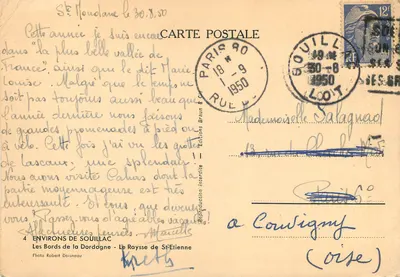 Ste Mondane le 30.8.50
Cette année je suis encore
dans "la plus belle vallée de
France", ainsi que le dit Marie
Louise. Malgré que le temps ne
soit pas toujours aussi beau que
l'année dernière nous faisons
de grandes promenades à pied ou
à vélo. Cette fois j'ai vu les grottes
de Lascaux, une splendeur !
Nous avons visité Cahors dont la
partie moyennageuse est très
intéressante. Et vous, que devenez
vous ? Passez vous d'agréables vacances
4 ENVIRONS DE SOUILLAC
Les Bords de la Dordogne - Le Raysse de St-Etienne
Photo Robert Doisneau
Reproduction interdite
CARTE POSTALE
PARIS 80
18 H
1 - 9
1950
RUE
SOUILLAC
19 H
30-8
1950
LOT
12F
Mademoiselle Salagnad
à Couvigny
(Oise)